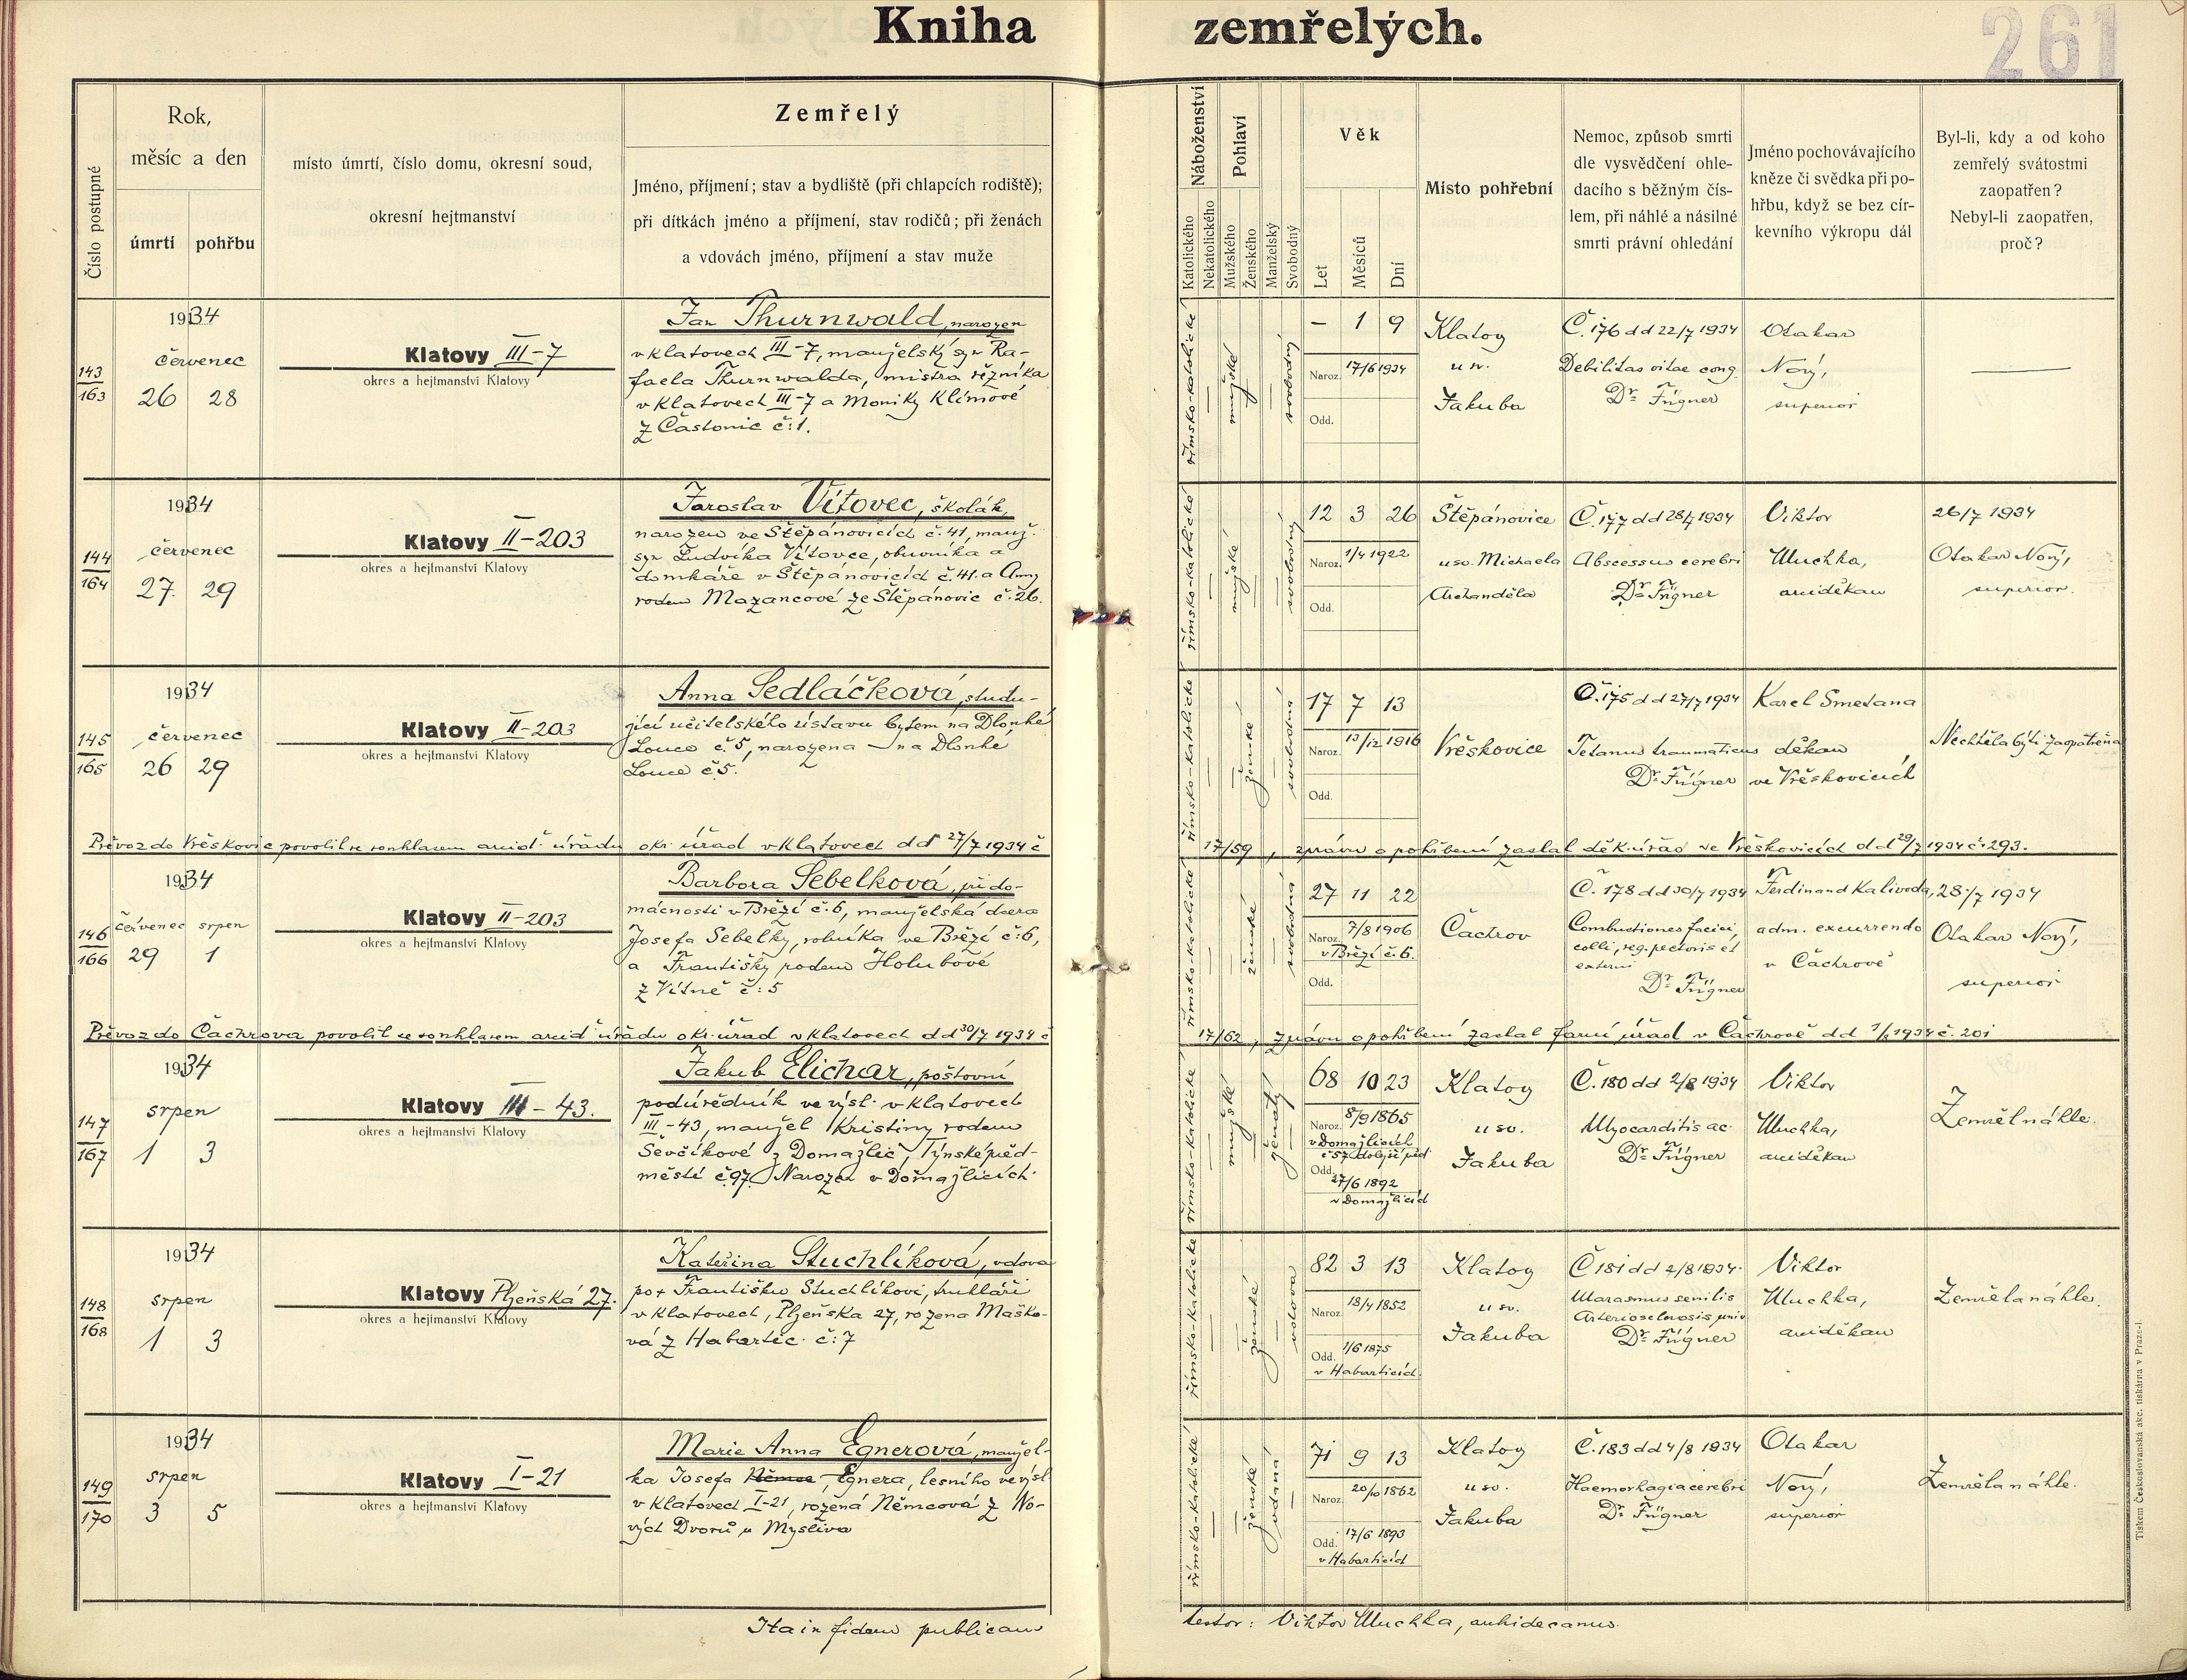 Kniha zemřelých.
261
Číslo postupné
Rok,
měsíc a den
úmrtí pohřbu
místo úmrtí, číslo domu, okresní soud,
okresní hejtmanství
Zemřelý
Jméno, příjmení; stav a bydliště (při chlapcích rodiště);
při dítkách jméno a příjmení, stav rodičů; při ženách
a vdovách jméno, příjmení a stav muže
Náboženství
Katolického
Nekatolického
Pohlaví
Mužského
Ženského
Manželský
Svobodný
Věk
Let
Měsíců
Dní
Místo pohřební
Nemoc, způsob smrti
dle vysvědčení ohle-
dacího s běžným čís-
lem, při náhlé a násilné
smrti právní ohledání
Jméno pochovávajícího
kněze či svědka při po-
hřbu, když se bez cír-
kevního výkropu dál
Byl-li, kdy a od koho
zemřelý svátostmi
zaopatřen?
Nebyl-li zaopatřen,
proč?
143
163
1934
červenec
26 28
Klatovy III-7
okres a hejtmanství Klatovy
Jan Thurnwald, narozen
v Klatovech III-7, manželský syn Ra-
faela Thurnwalda, mistra řezníka
v Klatovech III-7 a Moniky Klímové
z Častonic č:1.
římsko-katolické
mužské
svobodný
– 1 9
Naroz. 17/6 1934
Odd.
Klatovy
u sv.
Jakuba
Č. 176 dd 22/7 1934
Debilitas vitae cong.
Dr. Fügner
Otakar
Nový,
superior
144
164
1934
červenec
27. 29
Klatovy II-203
okres a hejtmanství Klatovy
Jaroslav Vítovec, školák,
narozen ve Štěpánovicích č. 41, manž.
syn Ludvíka Vítovce, obuvníka a
domkáře v Štěpánovicích č. 41. a Anny
rodem Mazancové ze Štěpánovic č. 26.
římsko-katolické
mužské
svobodný
12 3 26
Naroz. 1/4 1922
Odd.
Štěpánovice
u sv. Michaela
Archanděla
Č. 177 dd 28/7 1934
Abscessus cerebri
Dr. Fügner
Viktor
Uluchka,
arciděkan
26/7 1934
Otakar Nový,
superior.
145
165
1934
červenec
26 29
Klatovy II-203
okres a hejtmanství Klatovy
Anna Sedláčková, studu-
jící učitelského ústavu bytem na Dlouhé
Louce č. 5, narozena na Dlouhé
Louce č. 5.
římsko-katolické
ženské
svobodná
17 7 13
Naroz. 13/12 1916
Odd.
Vřeskovice
Č. 175 dd 27/7 1934
Tetanus traumaticus
Dr. Fügner
Karel Smetana
děkan
ve Vřeskovicích
Nechtěla býti zaopatřena
Převoz do Vřeskovic povolil se souhlasem arcid. úřadu okr. úřad v Klatovech dd 27/7 1934 č
17/59, zprávu o pohřbení zaslal děk. úřad ve Vřeskovicích dd 29/7 1934 č. 293.
146
166
1934
červenec srpen
29 1
Klatovy II-203
okres a hejtmanství Klatovy
Barbora Sebelková, při do-
mácnosti v Březí č. 6, manželská dcera
Josefa Sebelky, rolníka ve Březí č: 6,
a Františky rodem Holubové
z Vítně č: 5
římsko-katolické
ženské
svobodná
27 11 22
Naroz. 7/8 1906
v Březí č. 6.
Odd.
Čachrov
Č. 178 dd 30/7 1934
Combustiones faciei,
colli, reg. pectoris et
externi
Dr. Fügner
Ferdinand Kalivoda,
adm. excurrendo
v Čachrově
28./7 1934
Otakar Nový,
superior
Převoz do Čachrova povolil se souhlasem arcid. úřadu okr. úřad v Klatovech dd 30/7 1934 č
17/62, zprávu o pohřbení zaslal farní úřad v Čachrově dd 1/8 1934 č. 201
147
167
1934
srpen
1 3
Klatovy III – 43.
okres a hejtmanství Klatovy
Jakub Elichar, poštovní
podúředník ve výsl. v Klatovech
III-43, manžel Kristiny rodem
Ševčíkové z Domažlic, Týnské před-
městí č. 97. Narozen v Domažlicích
římsko-katolické
mužské
ženatý
68 10 23
Naroz. 8/9 1865
v Domažlicích
č 57 dolejší před.
Odd. 27/6 1892
v Domažlicích
Klatovy
u sv.
Jakuba
Č. 180 dd 2/8 1934
Myocarditis ac.
Dr. Fügner
Viktor
Uluchka,
arciděkan
Zemřel náhle.
148
168
1934
srpen
1 3
Klatovy Plzeňská 27.
okres a hejtmanství Klatovy
Kateřina Stuchlíková, vdova
po † Františku Stuchlíkovi, truhláři
v Klatovech, Plzeňská 27, rozená Maško-
vá z Habartic č: 7
římsko-katolické
ženské
vdova
82 3 13
Naroz. 18/4 1852
Odd. 1/6 1875
v Habarticích
Klatovy
u sv.
Jakuba
Č 181 dd 2/8 1934.
Marasmus senilis
Arteriosclerosis univ.
Dr. Fügner
Viktor
Uluchka,
arciděkan
Zemřela náhle.
149
170
1934
srpen
3 5
Klatovy I-21
okres a hejtmanství Klatovy
Marie Anna Egnerová, manžel-
ka Josefa Němce, Egnera, lesního ve výsl.
v Klatovech I-21, rozená Němcová z No-
vých Dvorů u Myslíva
římsko-katolické
ženské
vdaná
71 9 13
Naroz. 20/10 1862
Odd. 17/6 1893
v Habarticích
Klatovy
u sv.
Jakuba
Č. 183 dd 4/8 1934
Haemorhagia cerebri
Dr. Fügner
Otakar
Nový,
superior
Zemřela náhle.
Ita in fidem publicam
testor: Viktor Uluchka, archidecanus.
Tiskem Českoslovanská akc. tiskárna v Praze-I.